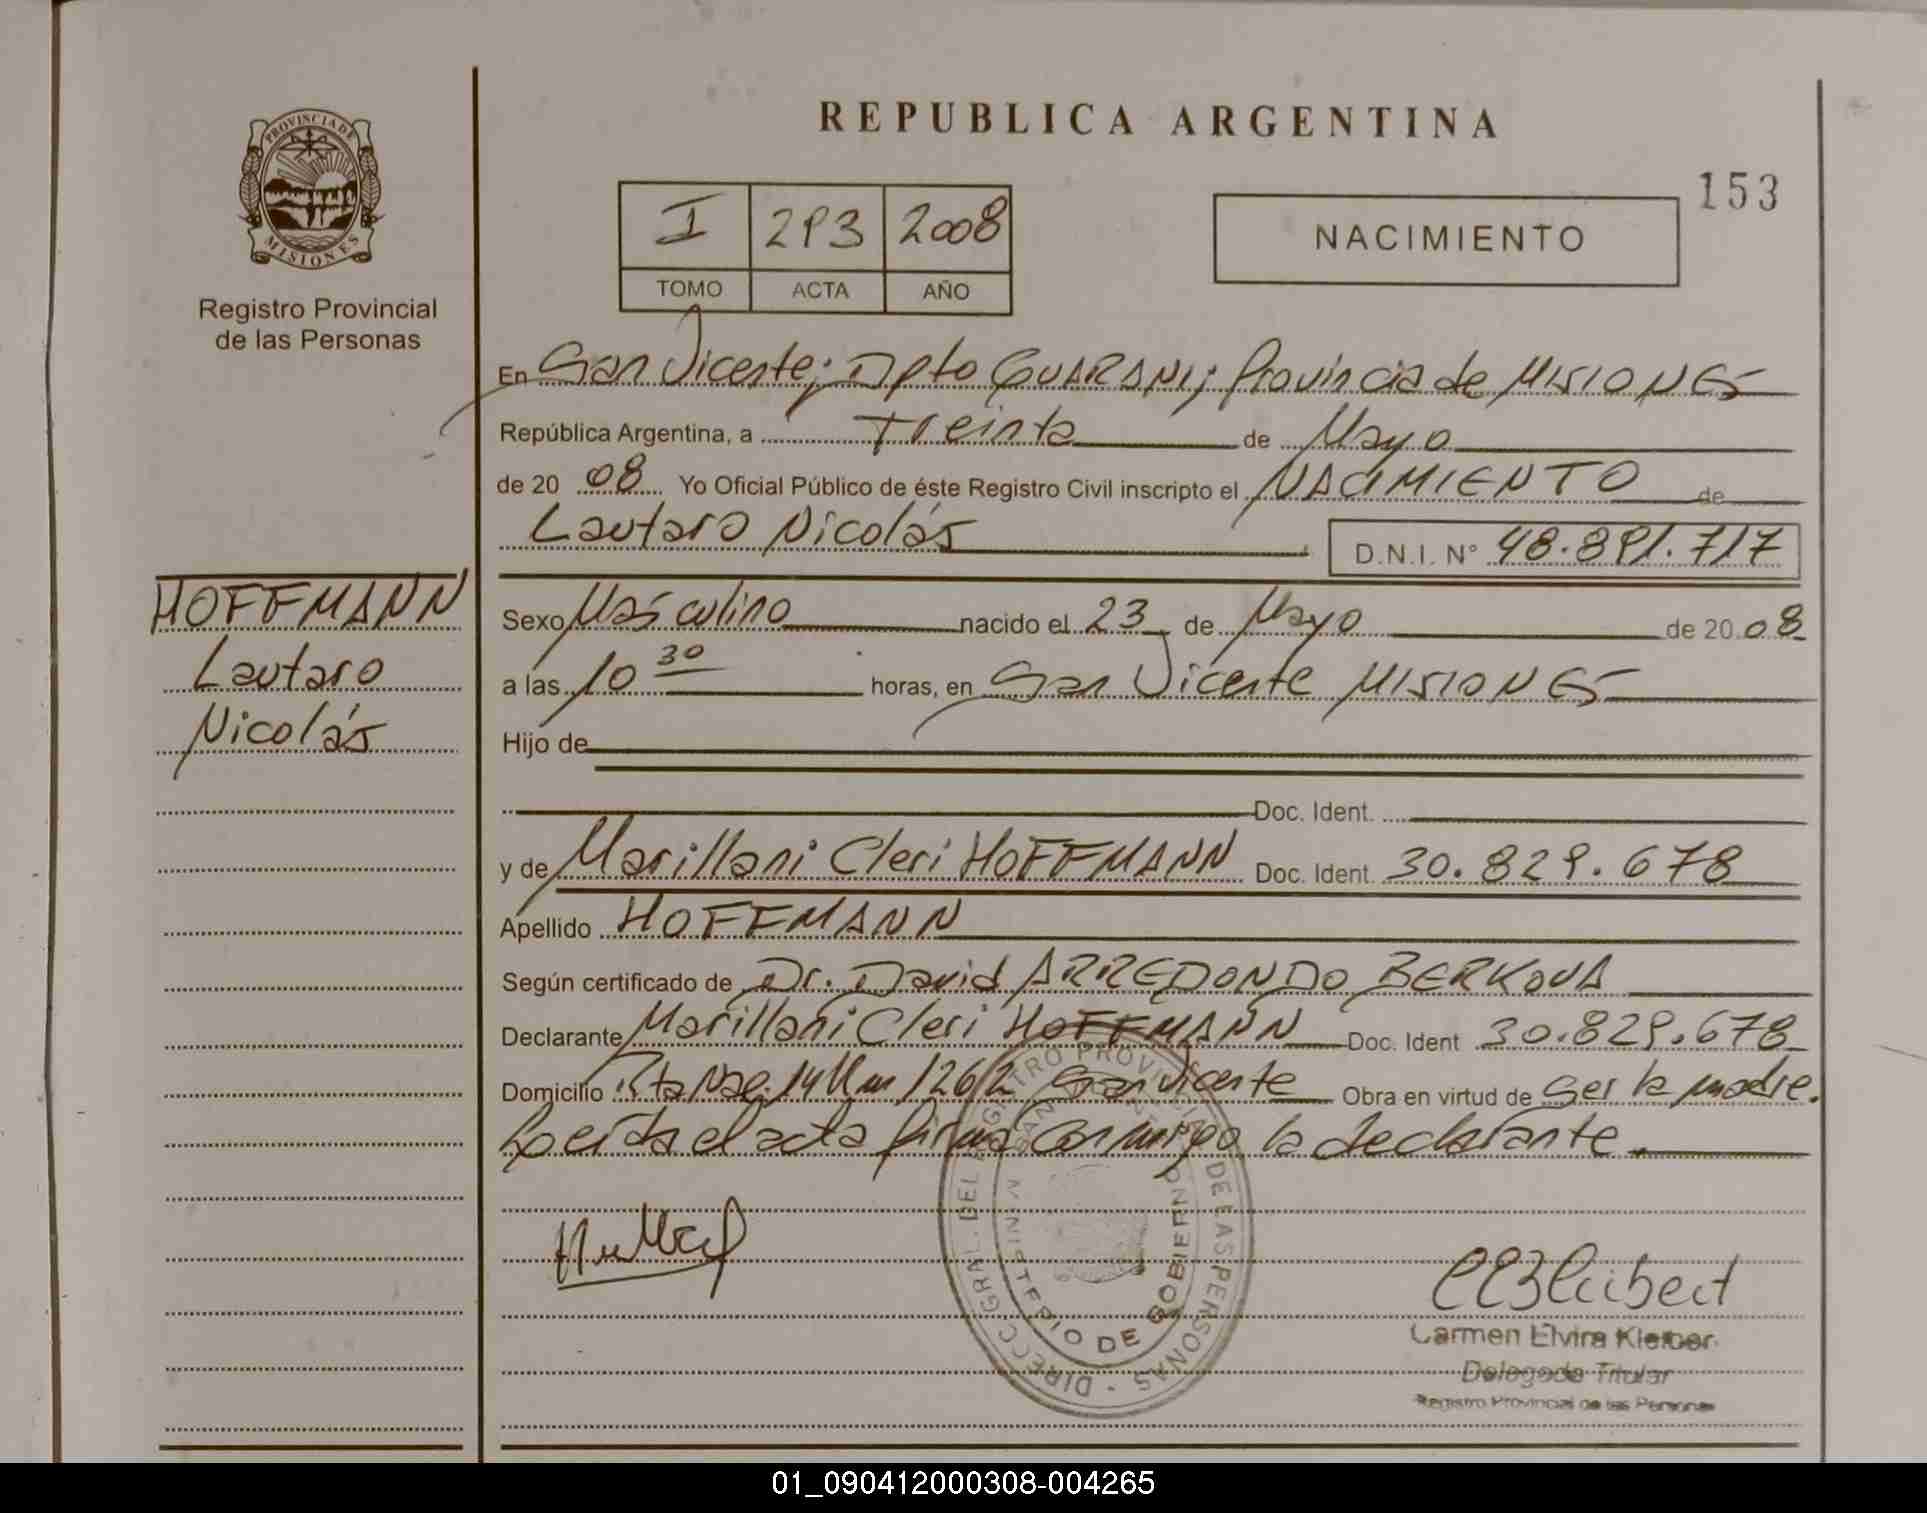 PROVINCIA DE
MISIONES
Registro Provincial
de las Personas
REPUBLICA ARGENTINA
153
I 293 2008
TOMO ACTA AÑO
NACIMIENTO
En San Vicente; Dpto GUARANI; Provincia de MISIONES
República Argentina, a Treinta de Mayo
de 20 08 Yo Oficial Público de éste Registro Civil inscripto el NACIMIENTO de
Lautaro Nicolás D.N.I. N° 48.891.717
HOFFMANN
Lautaro
Nicolás
Sexo Masculino nacido el 23 de Mayo de 20 08
a las 10 30 horas, en San Vicente MISIONES
Hijo de
Doc. Ident.
y de Marillani Cleri HOFFMANN Doc. Ident. 30.829.678
Apellido HOFFMANN
Según certificado de Dr. David ARREDONDO BERKOVA
Declarante Marillani Cleri HOFFMANN Doc. Ident 30.829.678
Domicilio Rta Nac. 14 Km 1262 San Vicente Obra en virtud de Ser la madre.
Leída el acta firma conmigo la declarante.
DIRECC. GRAL. DEL REGISTRO PROVINCIAL DE LAS PERSONAS
MINISTERIO DE GOBIERNO
Carmen Elvira Kleiber
Delegada Titular
Registro Provincial de las Personas
01_090412000308-004265